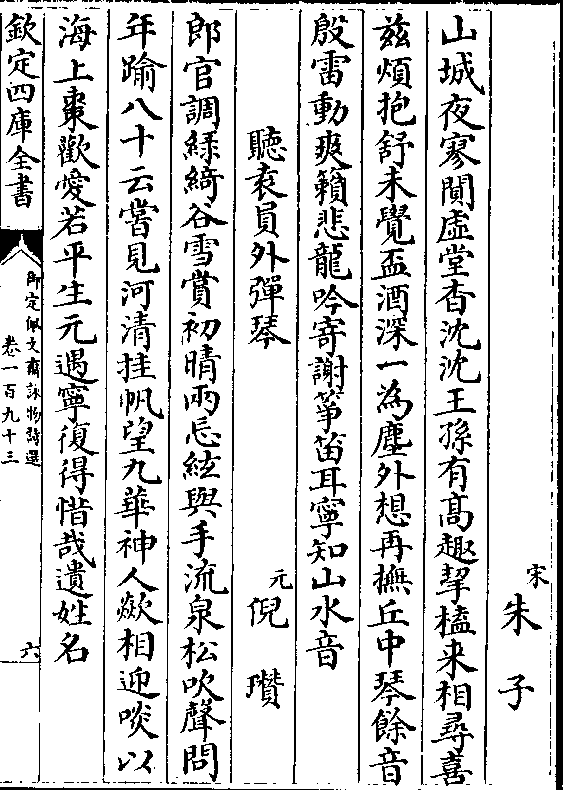 宋朱子
山城夜寥闃虛堂杳沈沈王孫有髙趣挈榼来相尋喜
兹煩抱舒未覺盃酒深一為塵外想再撫丘中琴餘音
殷雷動爽籟悲龍吟寄謝筝笛耳寧知山水音
聽袁員外彈琴
元倪瓚
郎官調緑綺谷雪賞初晴兩忘絃與手流泉松吹聲問
年踰八十云嘗見河清挂帆望九華神人歘相迎啖以
海上棗歡愛若平生元遇寧復得惜哉遺姓名
欽定四庫全書
御定佩文齋詠物詩選
卷一百九十三
六